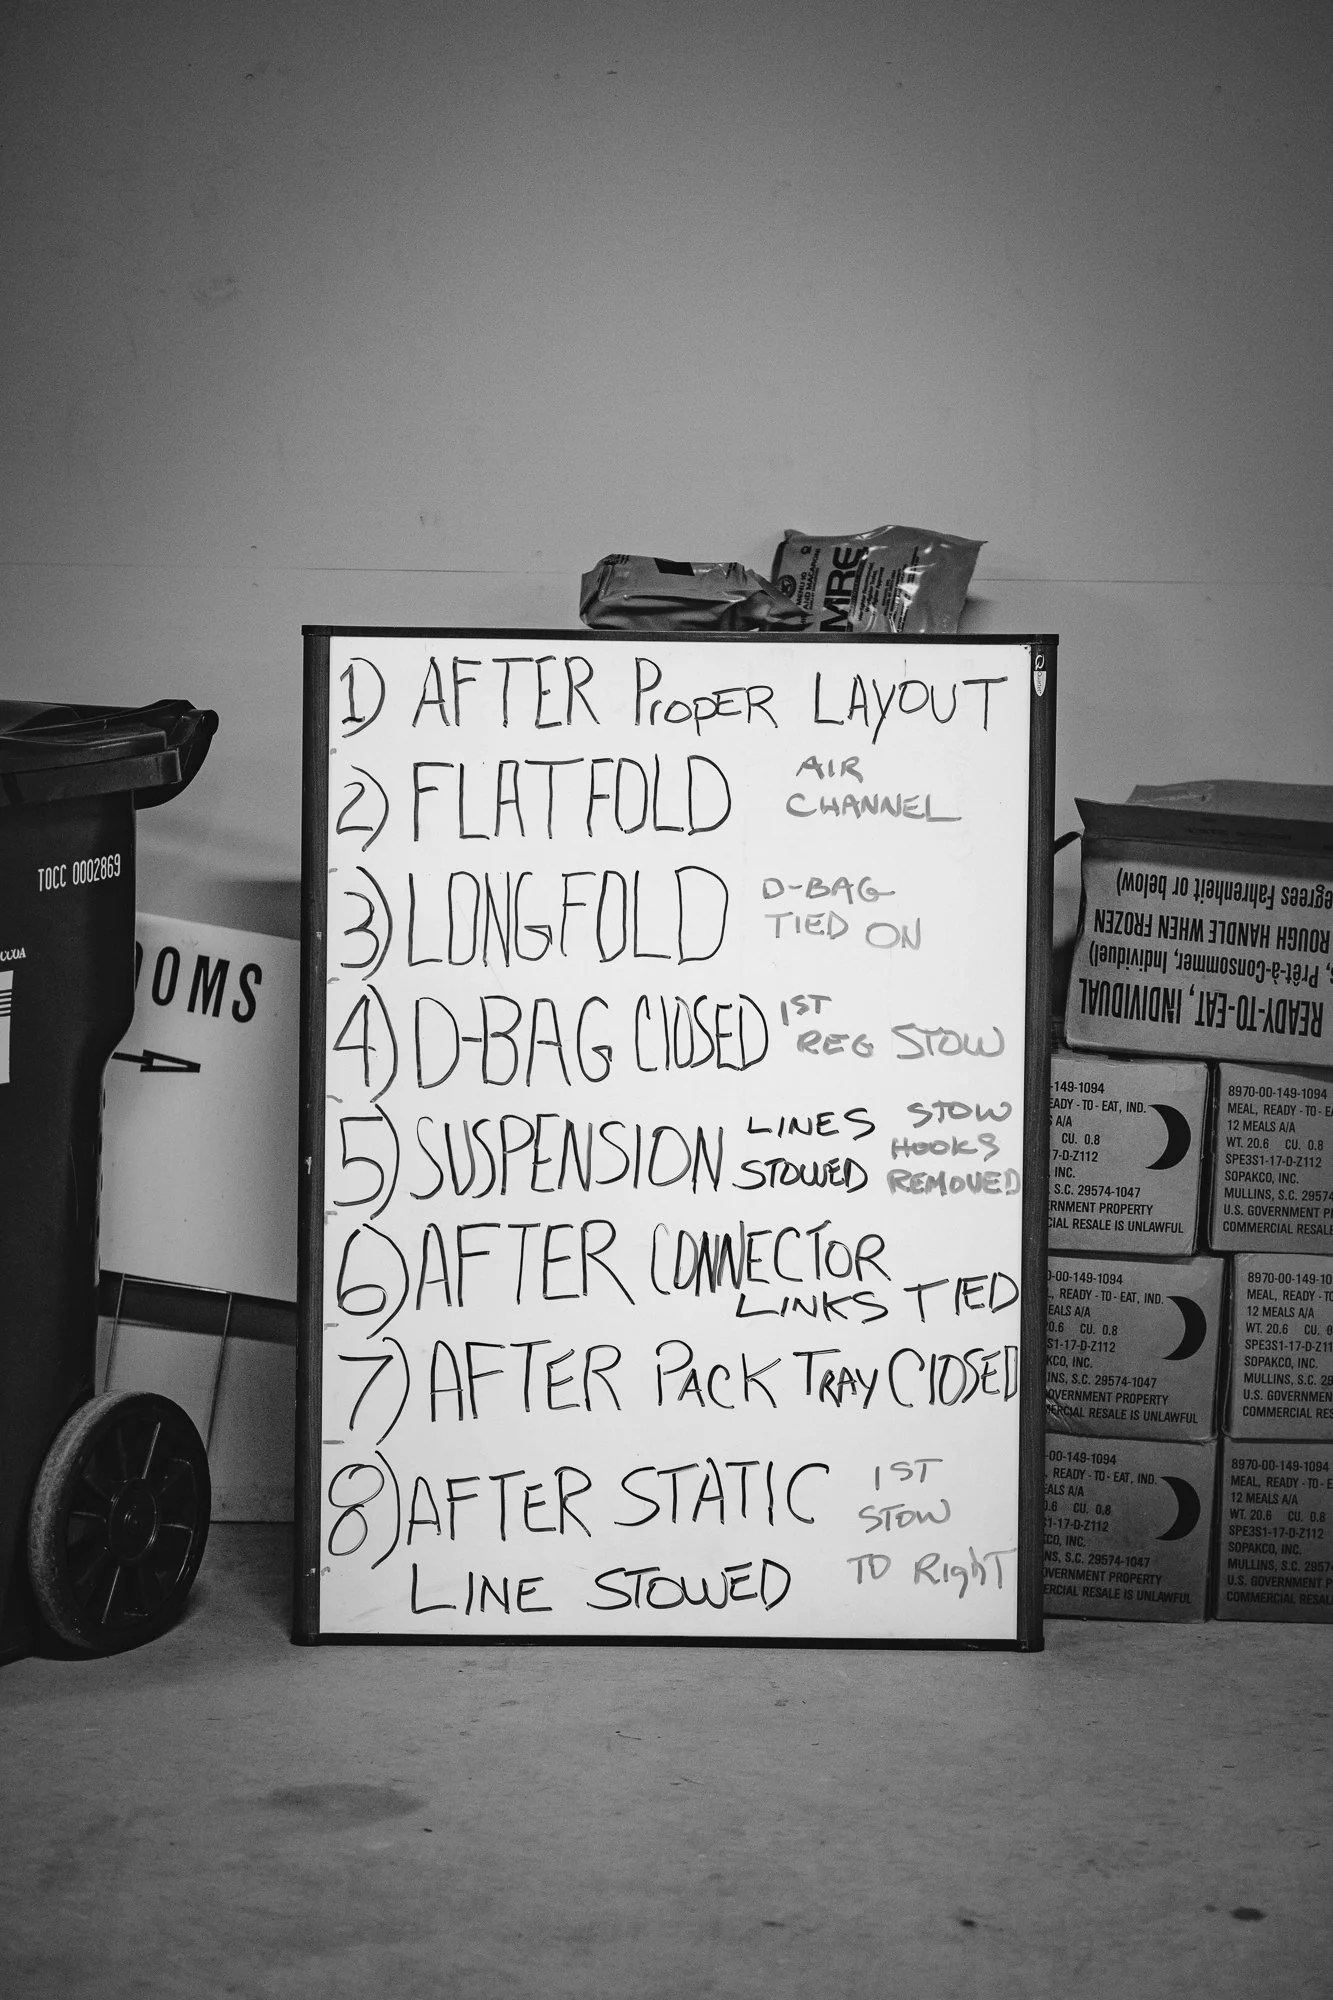 MRE
1) AFTER PropER LAYOUT
2) FLAT FOLD AIR
CHANNEL
3) LONG FOLD D-BAG
TIED ON
4) D-BAG ClOSED 1ST
REG STOW
5) SUSPENSION LINES STOW
HOOKS
STOWED REMOVED
6) AFTER CONNECTOR
LINKS TIED
7) AFTER PACK TRAY ClOSED
8) AFTER STATIC 1ST
STOW
LINE STOWED TO RighT
TOCC 0002869
OOMS
READY-TO-EAT, INDIVIDUAL
Prêt-à-Consommer, Individuel)
ROUGH HANDLE WHEN FROZEN
egrees Fahrenheit or below)
-149-1094
EADY - TO - EAT, IND.
S A/A
CU. 0.8
7-D-Z112
INC.
S.C. 29574-1047
RNMENT PROPERTY
CIAL RESALE IS UNLAWFUL
8970-00-149-1094
MEAL, READY - TO - E
12 MEALS A/A
WT. 20.6 CU. 0.8
SPE3S1-17-D-Z112
SOPAKCO, INC.
MULLINS, S.C. 29574-1047
U.S. GOVERNMENT P
COMMERCIAL RESAL
0-00-149-1094
L, READY - TO - EAT, IND.
EALS A/A
0.6 CU. 0.8
S1-17-D-Z112
KCO, INC.
INS, S.C. 29574-1047
OVERNMENT PROPERTY
ERCIAL RESALE IS UNLAWFUL
8970-00-149-10
MEAL, READY - T
12 MEALS A/A
WT. 20.6 CU. 0
SPE3S1-17-D-Z11
SOPAKCO, INC.
MULLINS, S.C. 29
U.S. GOVERNMEN
COMMERCIAL RES
-00-149-1094
READY - TO - EAT, IND.
ALS A/A
0.6 CU. 0.8
1-17-D-Z112
CO, INC.
NS, S.C. 29574-1047
VERNMENT PROPERTY
ERCIAL RESALE IS UNLAWFUL
8970-00-149-1094
MEAL, READY - TO - E
12 MEALS A/A
WT. 20.6 CU. 0.8
SPE3S1-17-D-Z112
SOPAKCO, INC.
MULLINS, S.C. 2957
U.S. GOVERNMENT P
COMMERCIAL RESAL